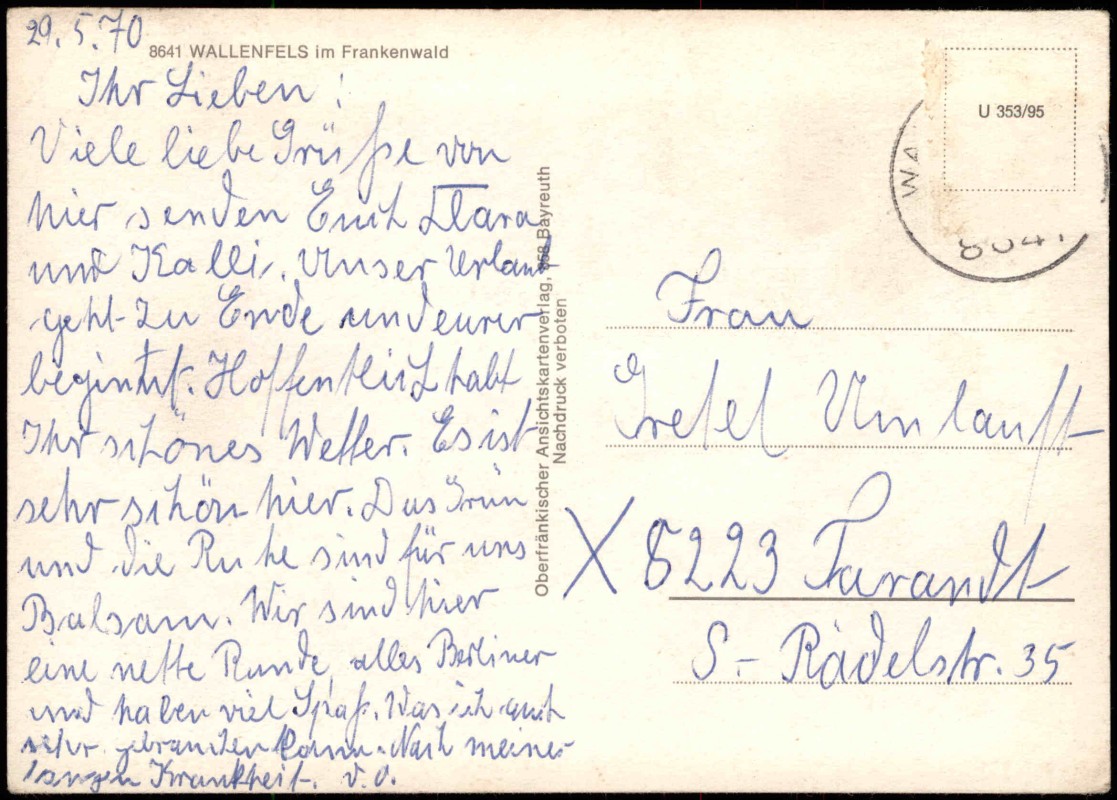 29.5.70
8641 WALLENFELS im Frankenwald
Ihr Lieben!
Viele liebe Grüße von
hier senden Euch Clara
und Kalli. Unser Urlaub
geht zu Ende und eurer
begintnt. Hoffentlich habt
Ihr schönes Wetter. Es ist
sehr schön hier. Das Grün
und die Ruhe sind für uns
Balsam. Wir sind hier
eine nette Runde, alles Berliner
und haben viel Spaß. Was ich auch
sehr gebrauchen kann. Nach meiner
langen Krankheit. V. O.
Oberfränkischer Ansichtskartenverlag, 858 Bayreuth
Nachdruck verboten
U 353/95
WA
8641
Frau
Gretel Umlauft
X 8223 Tarandt
S- Rädelstr. 35